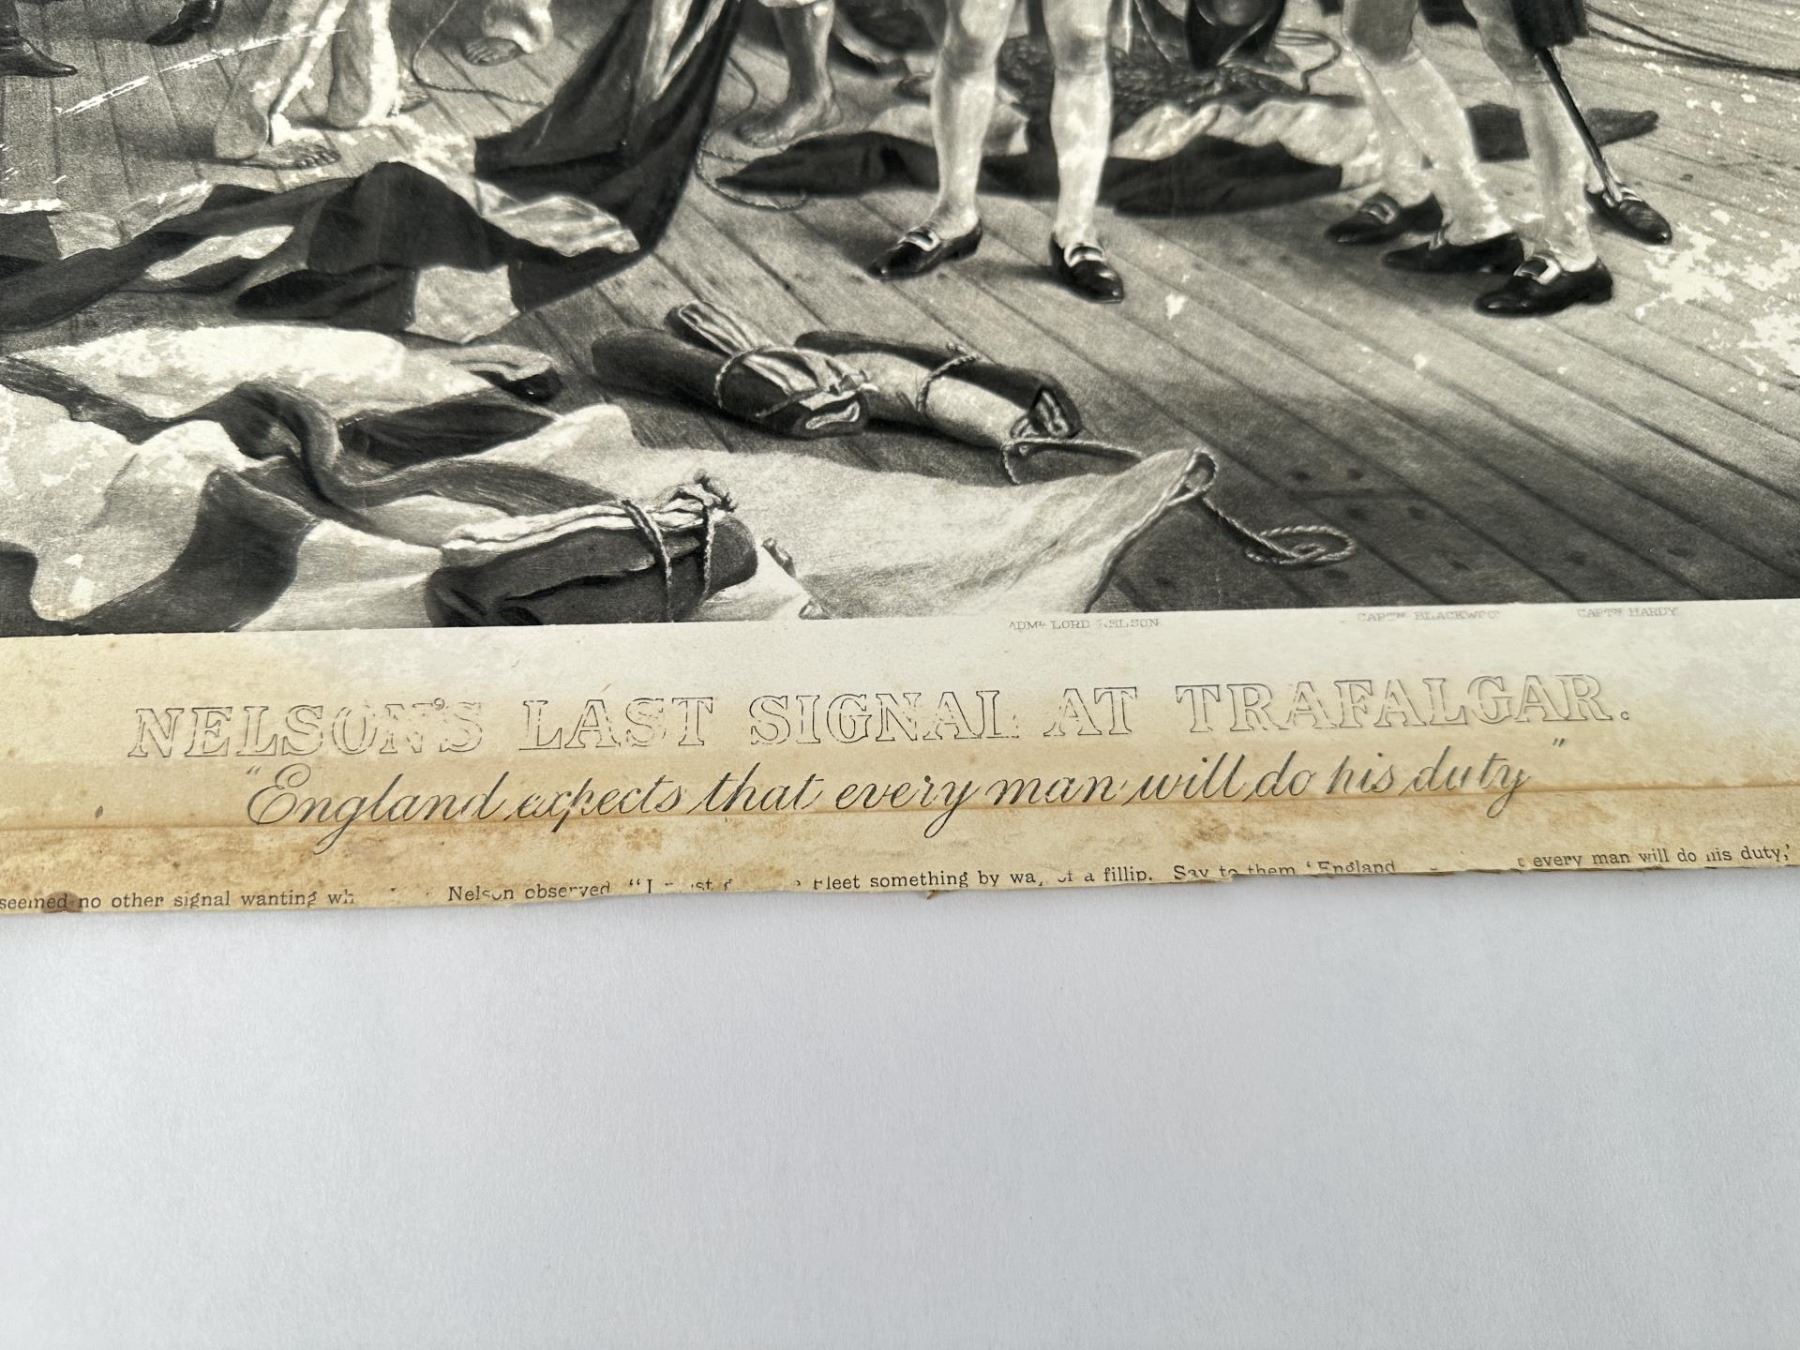 ADML. LORD NELSON
CAPTN. BLACKWOOD
CAPTN. HARDY
NELSON'S LAST SIGNAL AT TRAFALGAR.
"England expects that every man will do his duty"
seemed no other signal wanting Nelson observed fleet something by of a fillip. Say to them 'England every man will do his duty,'